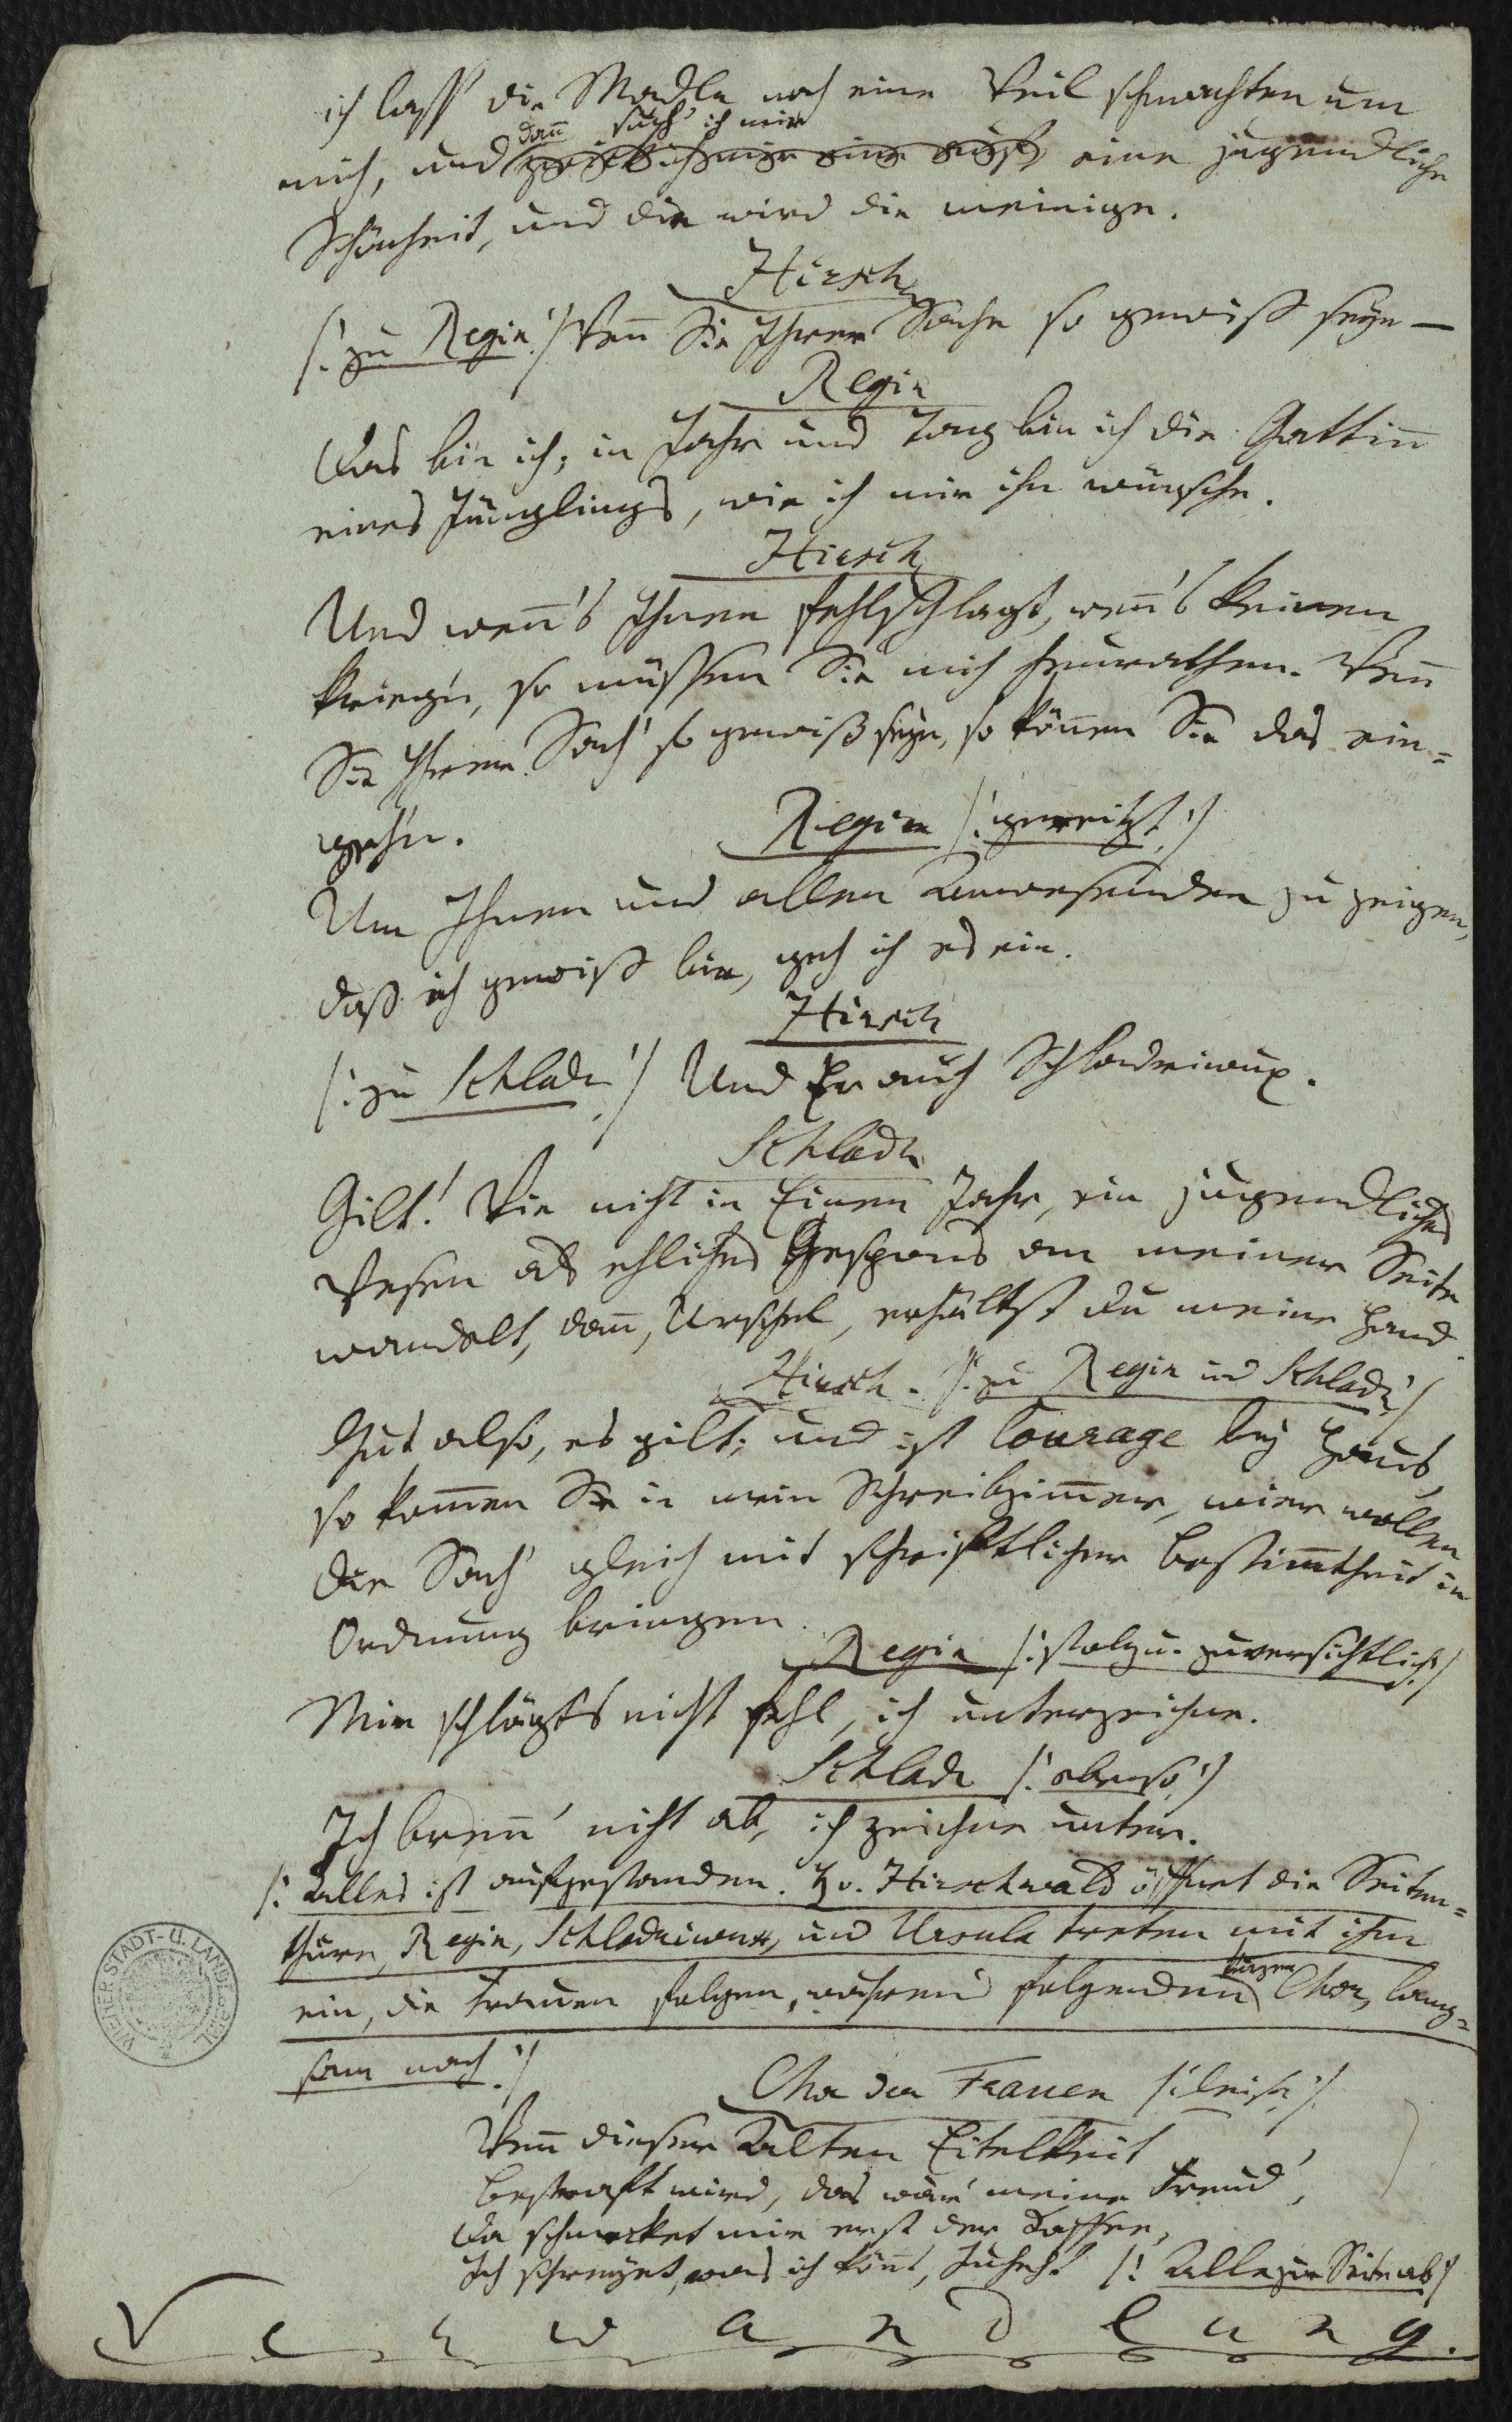 ich lass' die Madln noch eine Weil schmachten um
dann such' ich mir
mich, und eine jugendliche
Schönheit, und die wird die meinige.
Hirsch
/: zu Regin :/ Wenn Sie Ihrer Sache so gewiß seyn —
Regin
Das bin ich; in Jahr und Tag bin ich die Gattinn
eines Jünglings, wie ich mir ihn wünsche.
Hirsch
Und wenn's Ihnen fehlschlagt, wenn's keinen
krieg'n, so müssen Sie mich heurathen. Wenn
Sie Ihrer Sach' so gewiß seyn, so können Sie das ein=
geh'n.
Regin /: gereitzt :/
Um Ihnen und allen Anwesenden zu zeigen,
daß ich gewiß bin, geh ich es ein.
Hirsch
/: zu Schladr :/ Und Er auch Schladriwux.
Schladr
Gilt! Wie nicht in Einem Jahr, ein jugendliches
Wesen als ehliches Gespons an meiner Seite
wandelt, dann, Urschel, erhältst du meine Hand.
Hirsch. /: zu Regin und Schladr :/
Gut also, es gilt; und ist Courage bey Haus,
so kommen Sie in mein Schreibzimmer, wier wollen
die Sach' gleich mit schriftlicher Bestimmtheit in
Ordnung bringen.
Regin /: stolz u. zuversichtlich :/
Mir schlägts nicht fehl, ich unterzeichne.
Schladr /: ebenso :/
Ich brenn' nicht ab, ich zeichne unter.
/: Alles ist aufgestanden. H v. Hirschwald öffnet die Seiten=
thüre, Regin, Schladriwux, und Ursula treten mit ihm
kurzen
ein, die Frauen folgen, während folgenden Chor, lang=
sam nach :/
Chor der Frauen /: leise :/
Wenn dieser Alten Eitelkeit
Bestraft wird, das wär' meine Freud',
Da schmecket mir erst der Kaffee,
Ich schreyet, was ich könnt, Juhehe! /: Alle zur Seite ab :/
Verwandlung.
WIENER STADT- U. LANDESBIBL.